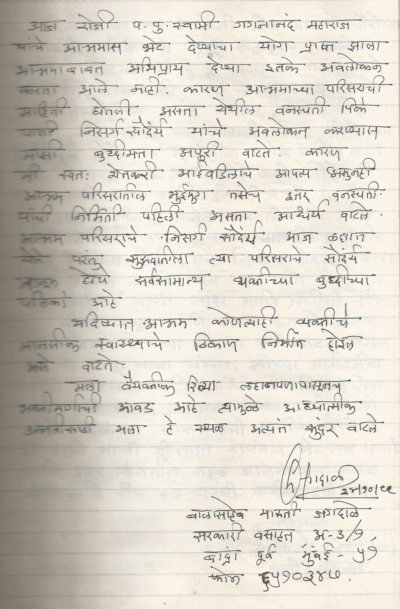 आज रोजी प. पु. स्वामी गगनानंद महाराज
यांचे आश्रमास भेट देण्याचा योग प्राप्त झाला
आश्रमाबाबत अभिप्राय देण्या इतके अवलोकन
करता आले नाही. कारण आश्रमाच्या परिसराची
माहिती घेतली असता येथील वनस्पती पिके
पाणी निसर्ग सौंदर्य यांचे अवलोकन करण्यास
माझी बुध्दीमता अपुरी वाटते. कारण
मी स्वतः शेतकरी आईवडिलांचे आपत्य असुनही
आश्रम परिसरातील भुईमुग तसेच इतर वनस्पती
यांची निर्मिती पहिली असता आश्चर्य वाटले.
आश्रम परिसराचे निसर्ग सौंदर्य आज लहान
परंतु त्या परिसराचे सौंदर्य
येथे सर्वसामान्य व्यक्तीच्या बुध्दीच्या
पलिकडे आहे
भविष्यात आश्रम कोणत्याही व्यक्तीचे
मानसीक स्वास्थ्याचे ठिकाण निर्माण होईल
असे वाटते.
मला वैयक्तीक रित्या लहानपणापासुनच
आवड आहे त्यामुळे आध्यात्मीक
उन्नतीसाठी मला हे स्थळ अत्यंत सुंदर वाटले
बाळासाहेब मारुती जगदाळे
सरकारी वसाहत अ-३/१,
बांद्रा पूर्व मुंबई - ५१
फोन ६५१०३४७.